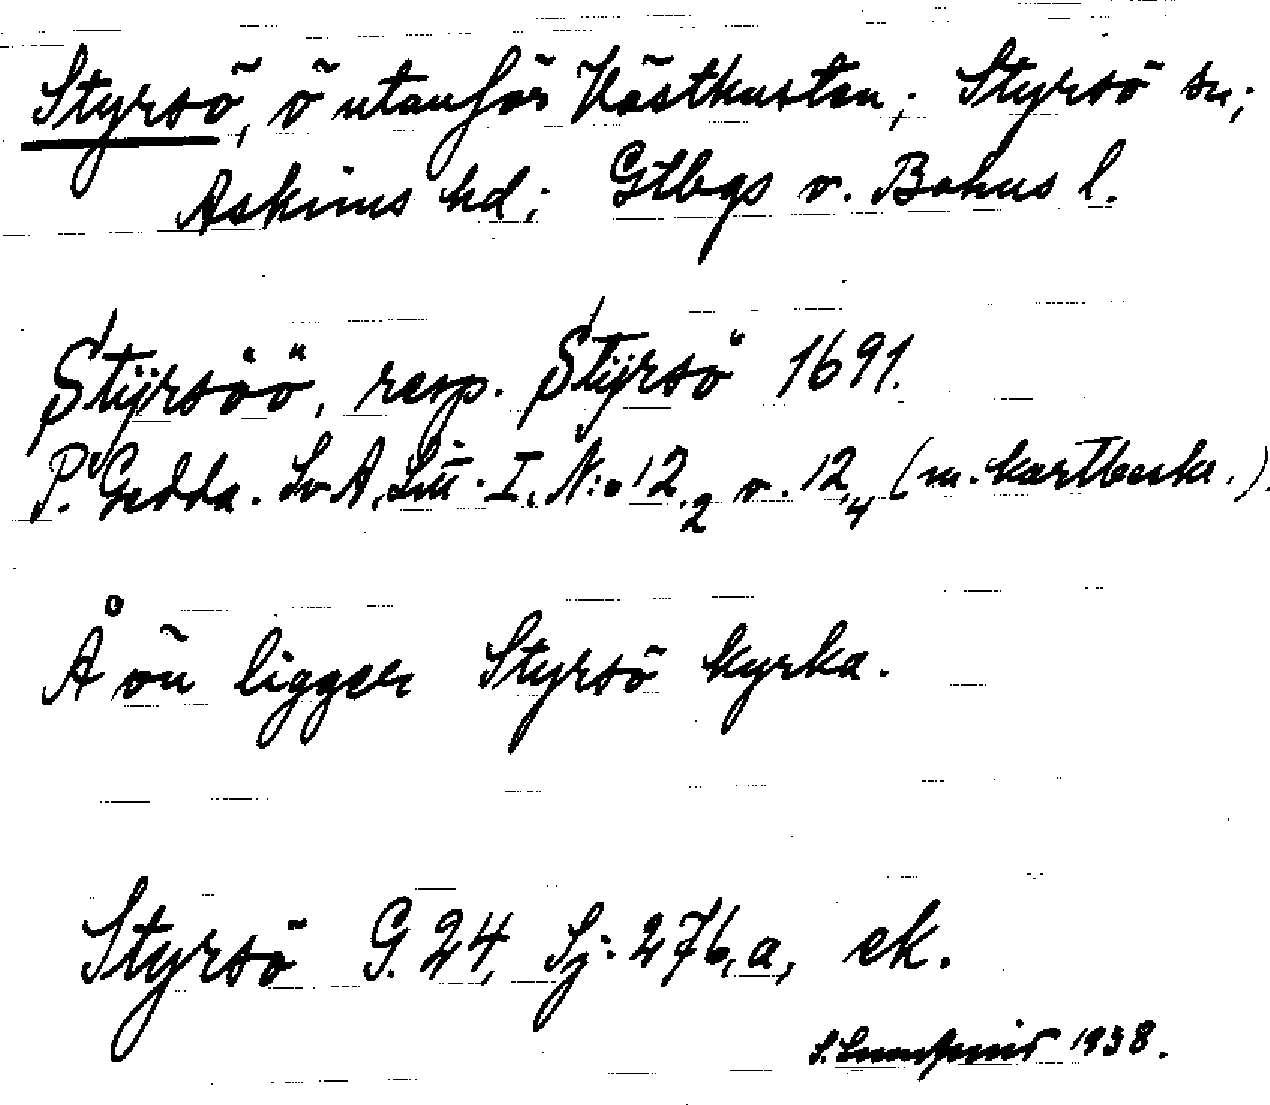 Styrsö, ö utanför Västkusten; Styrsö sn;
Askims hd; Gtbgs o. Bohus l.
Stÿrsöö, resp. Stÿrsö 1691.
P. Gedda. Sv A, Litt. I, N:o 12,2 o. 12,4 (m. kartbeskr.).
Å ön ligger Styrsö kyrka.
Styrsö G. 24, Sj: 276, a, ek.
1938.